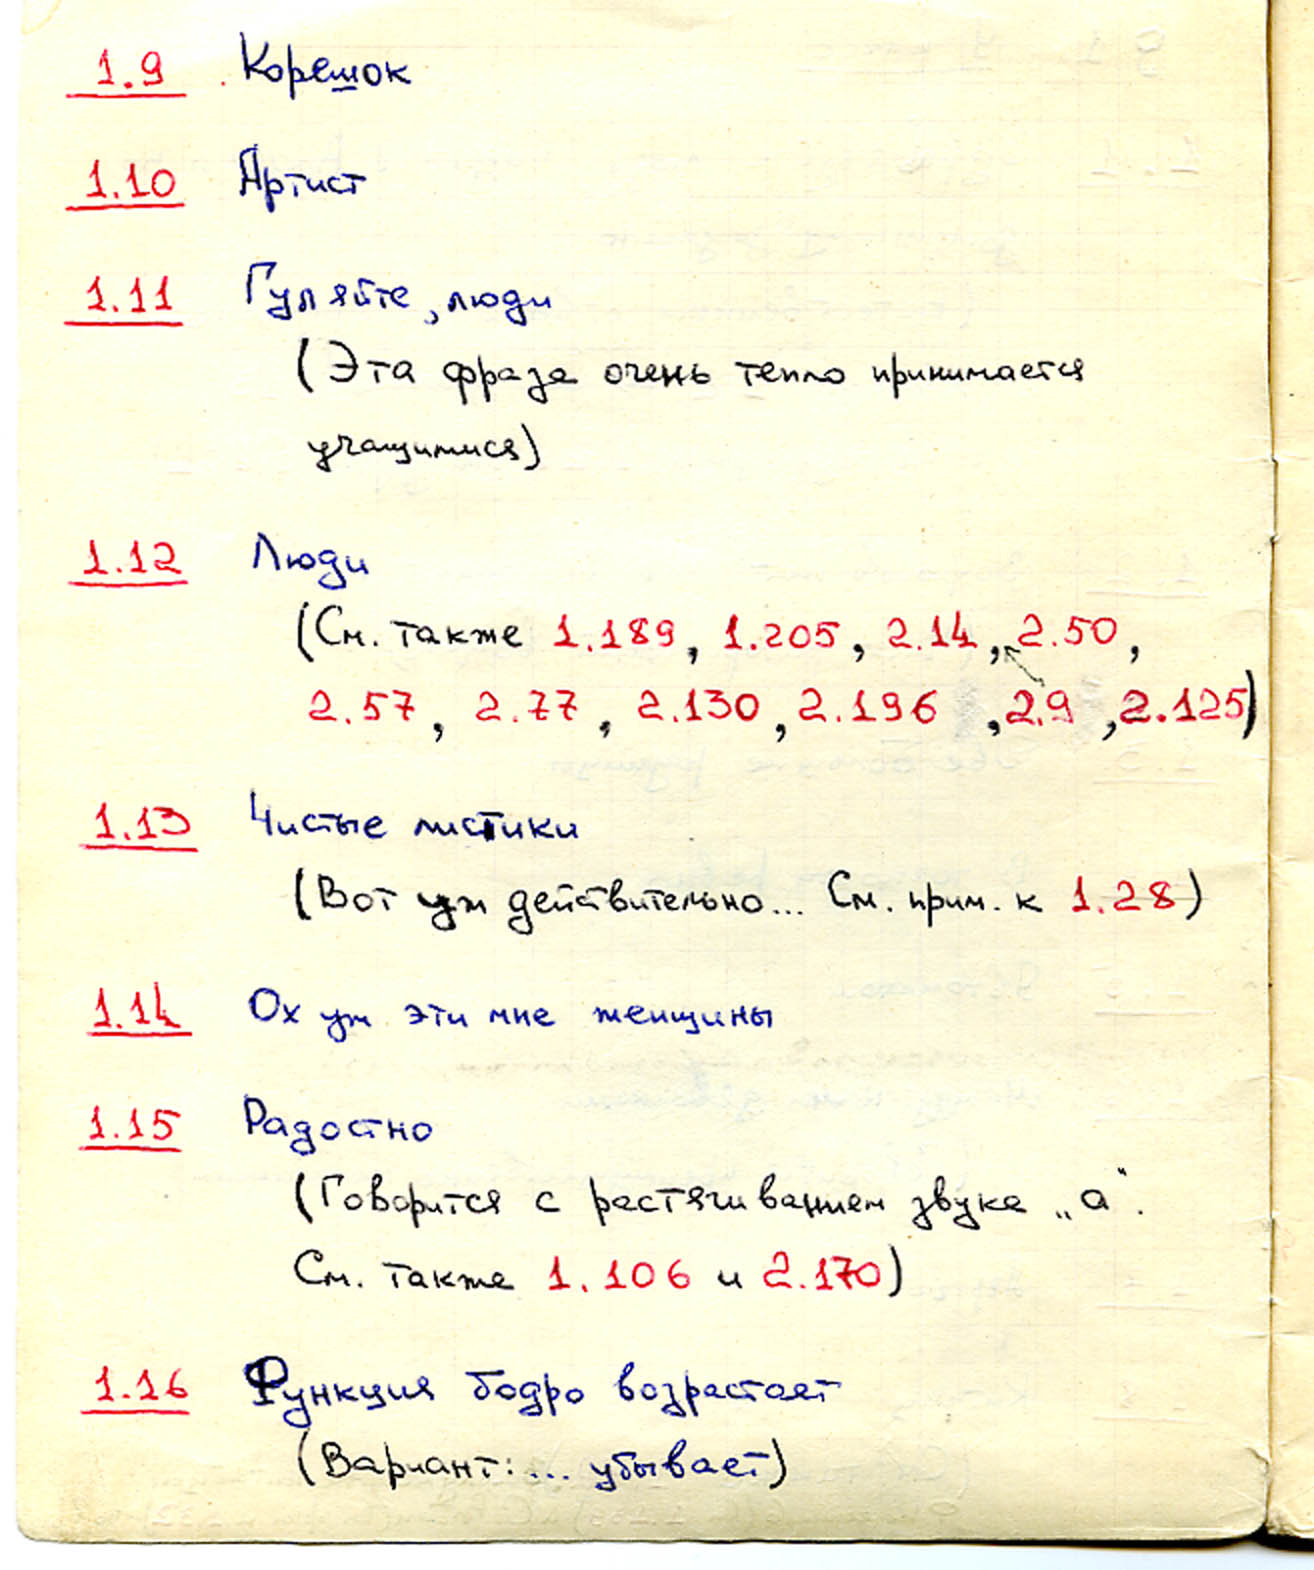 1.9 Корешок
1.10 Артист
1.11 Гуляйте, люди
(Эта фраза очень тепло принимается
учащимися)
1.12 Люди
(См. также 1.189, 1.205, 2.14, 2.50,
2.57, 2.77, 2.130, 2.196, 2.9, 2.125)
1.13 Чистые листики
(Вот уж действительно... См. прим. к 1.28)
1.14 Ох уж эти мне женщины
1.15 Радостно
(Говорится с растягиванием звука „а“.
См. также 1.106 и 2.170)
1.16 Функция бодро возрастает
(Вариант: ... убывает)